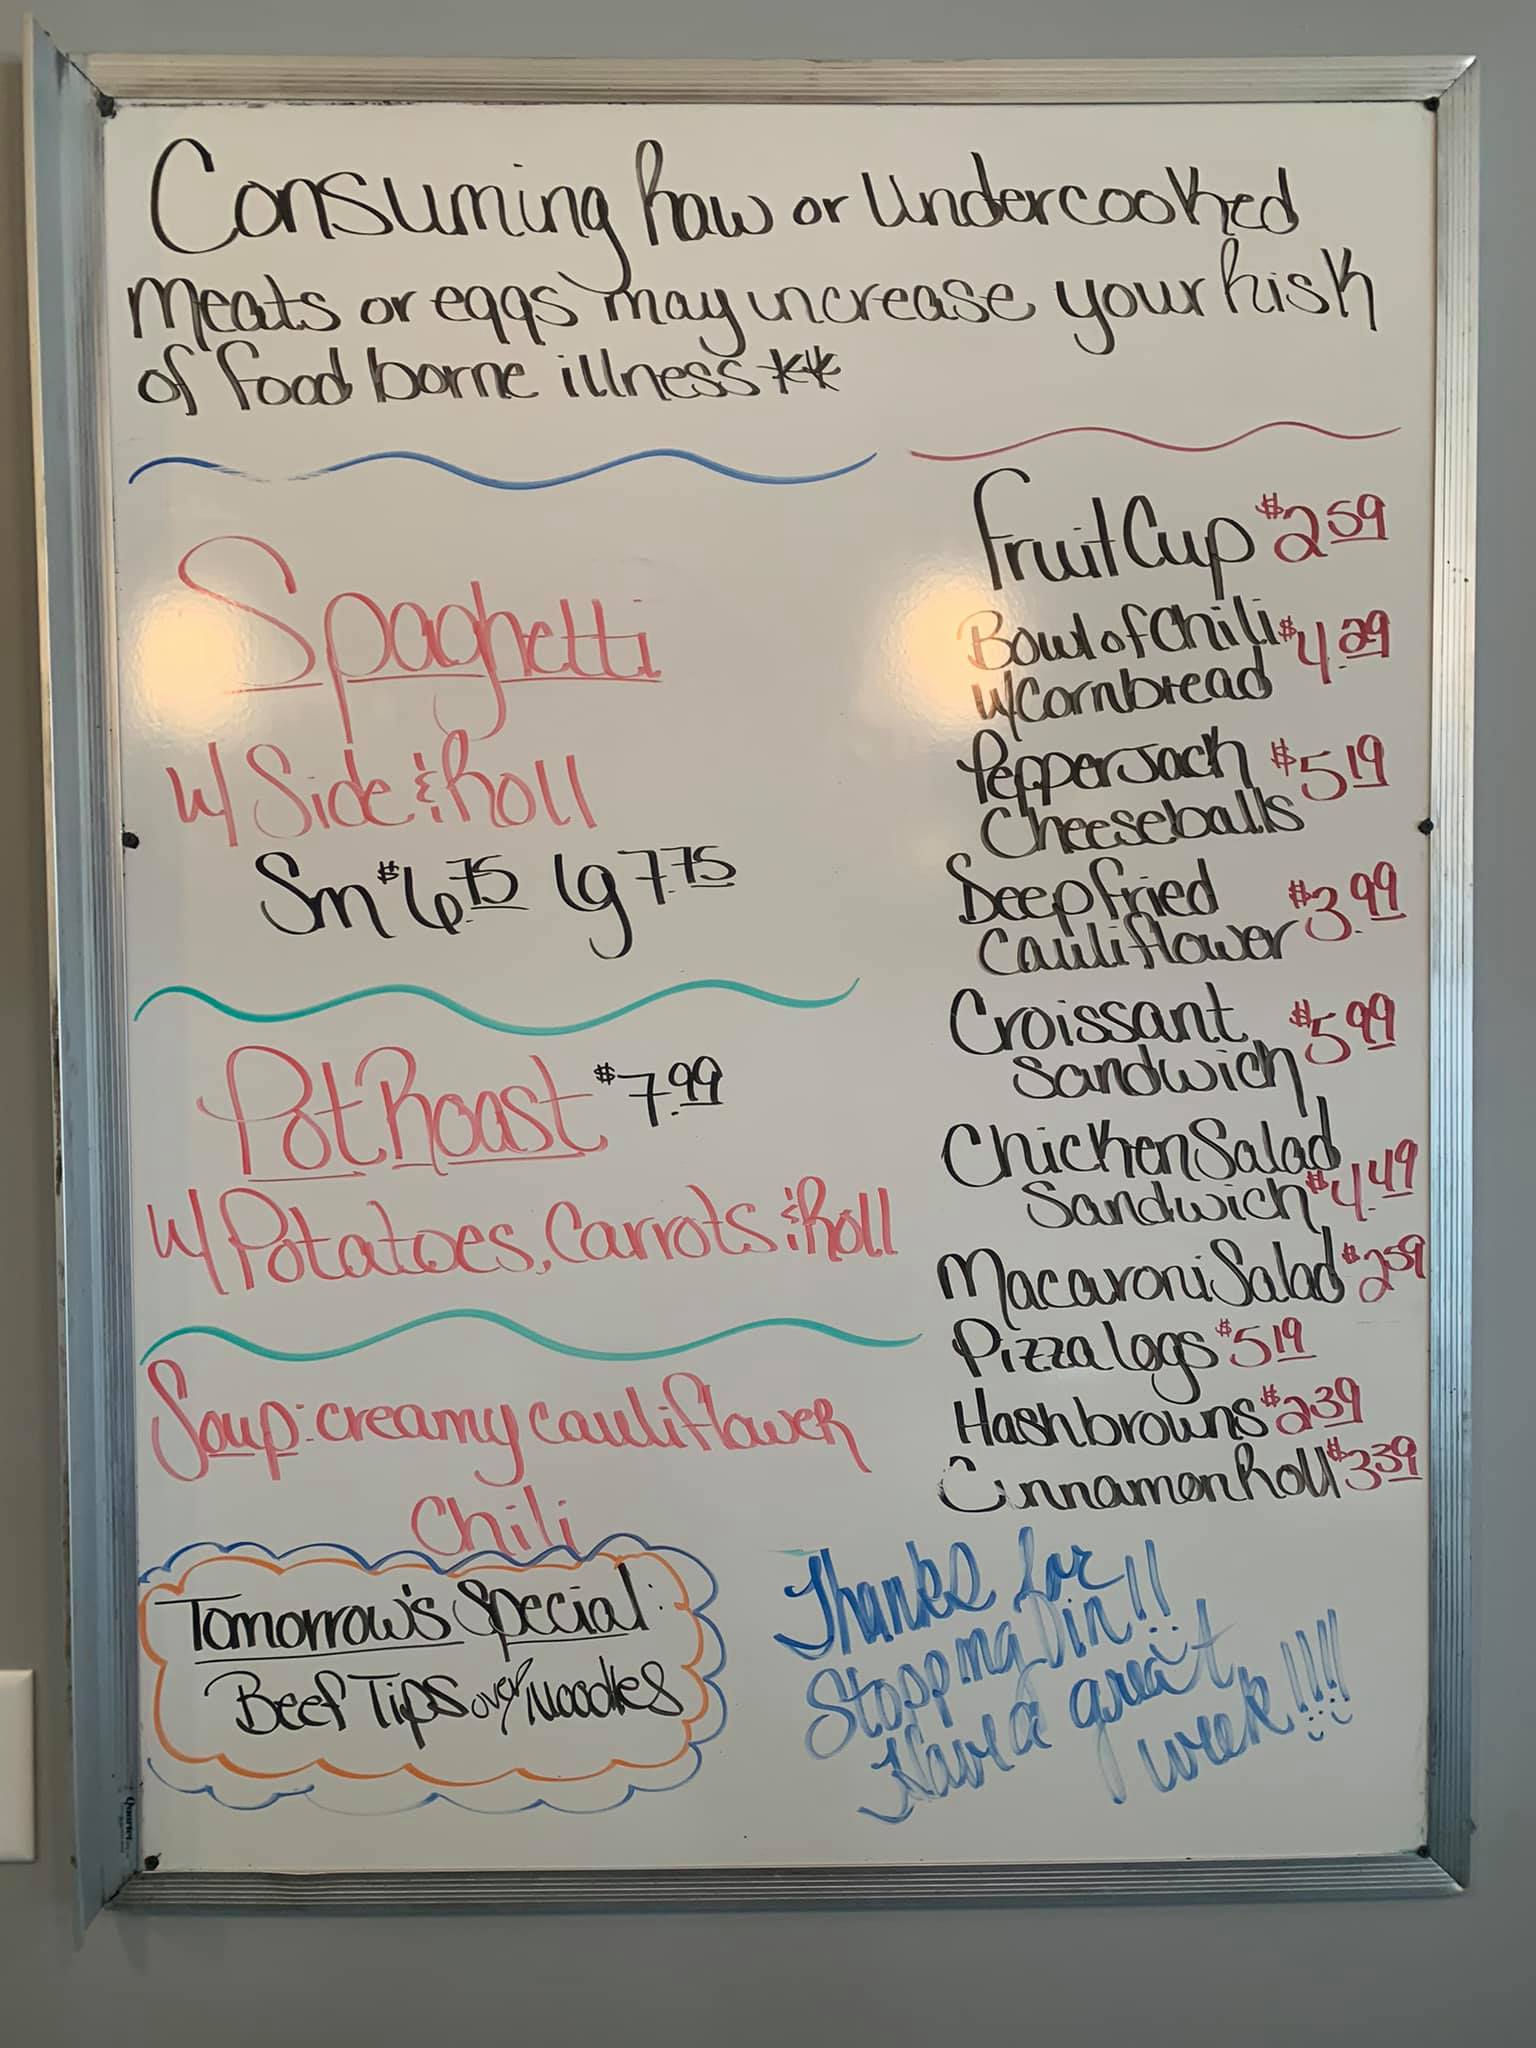 Consuming Raw or Undercooked
meats or eggs may increase your Risk
of food borne illness**
Spaghetti
w/ Side & Roll
Sm $6.75 lg 7.75
Pot Roast $7.99
w/ Potatoes, Carrots & Roll
Soup: creamy cauliflower
Chili
Tomorrow's Special:
Beef Tips over Noodles
Fruit Cup $2.59
Bowl of Chili $4.29
w/ Cornbread
Pepper Jack $5.19
Cheeseballs
Deep fried $3.99
Cauliflower
Croissant $5.99
Sandwich
Chicken Salad
Sandwich $4.49
Macaroni Salad $2.59
Pizza logs $5.19
Hashbrowns $2.39
Cinnamon Roll $3.39
Thanks for
Stopping in!!
Have a great
week!!!!